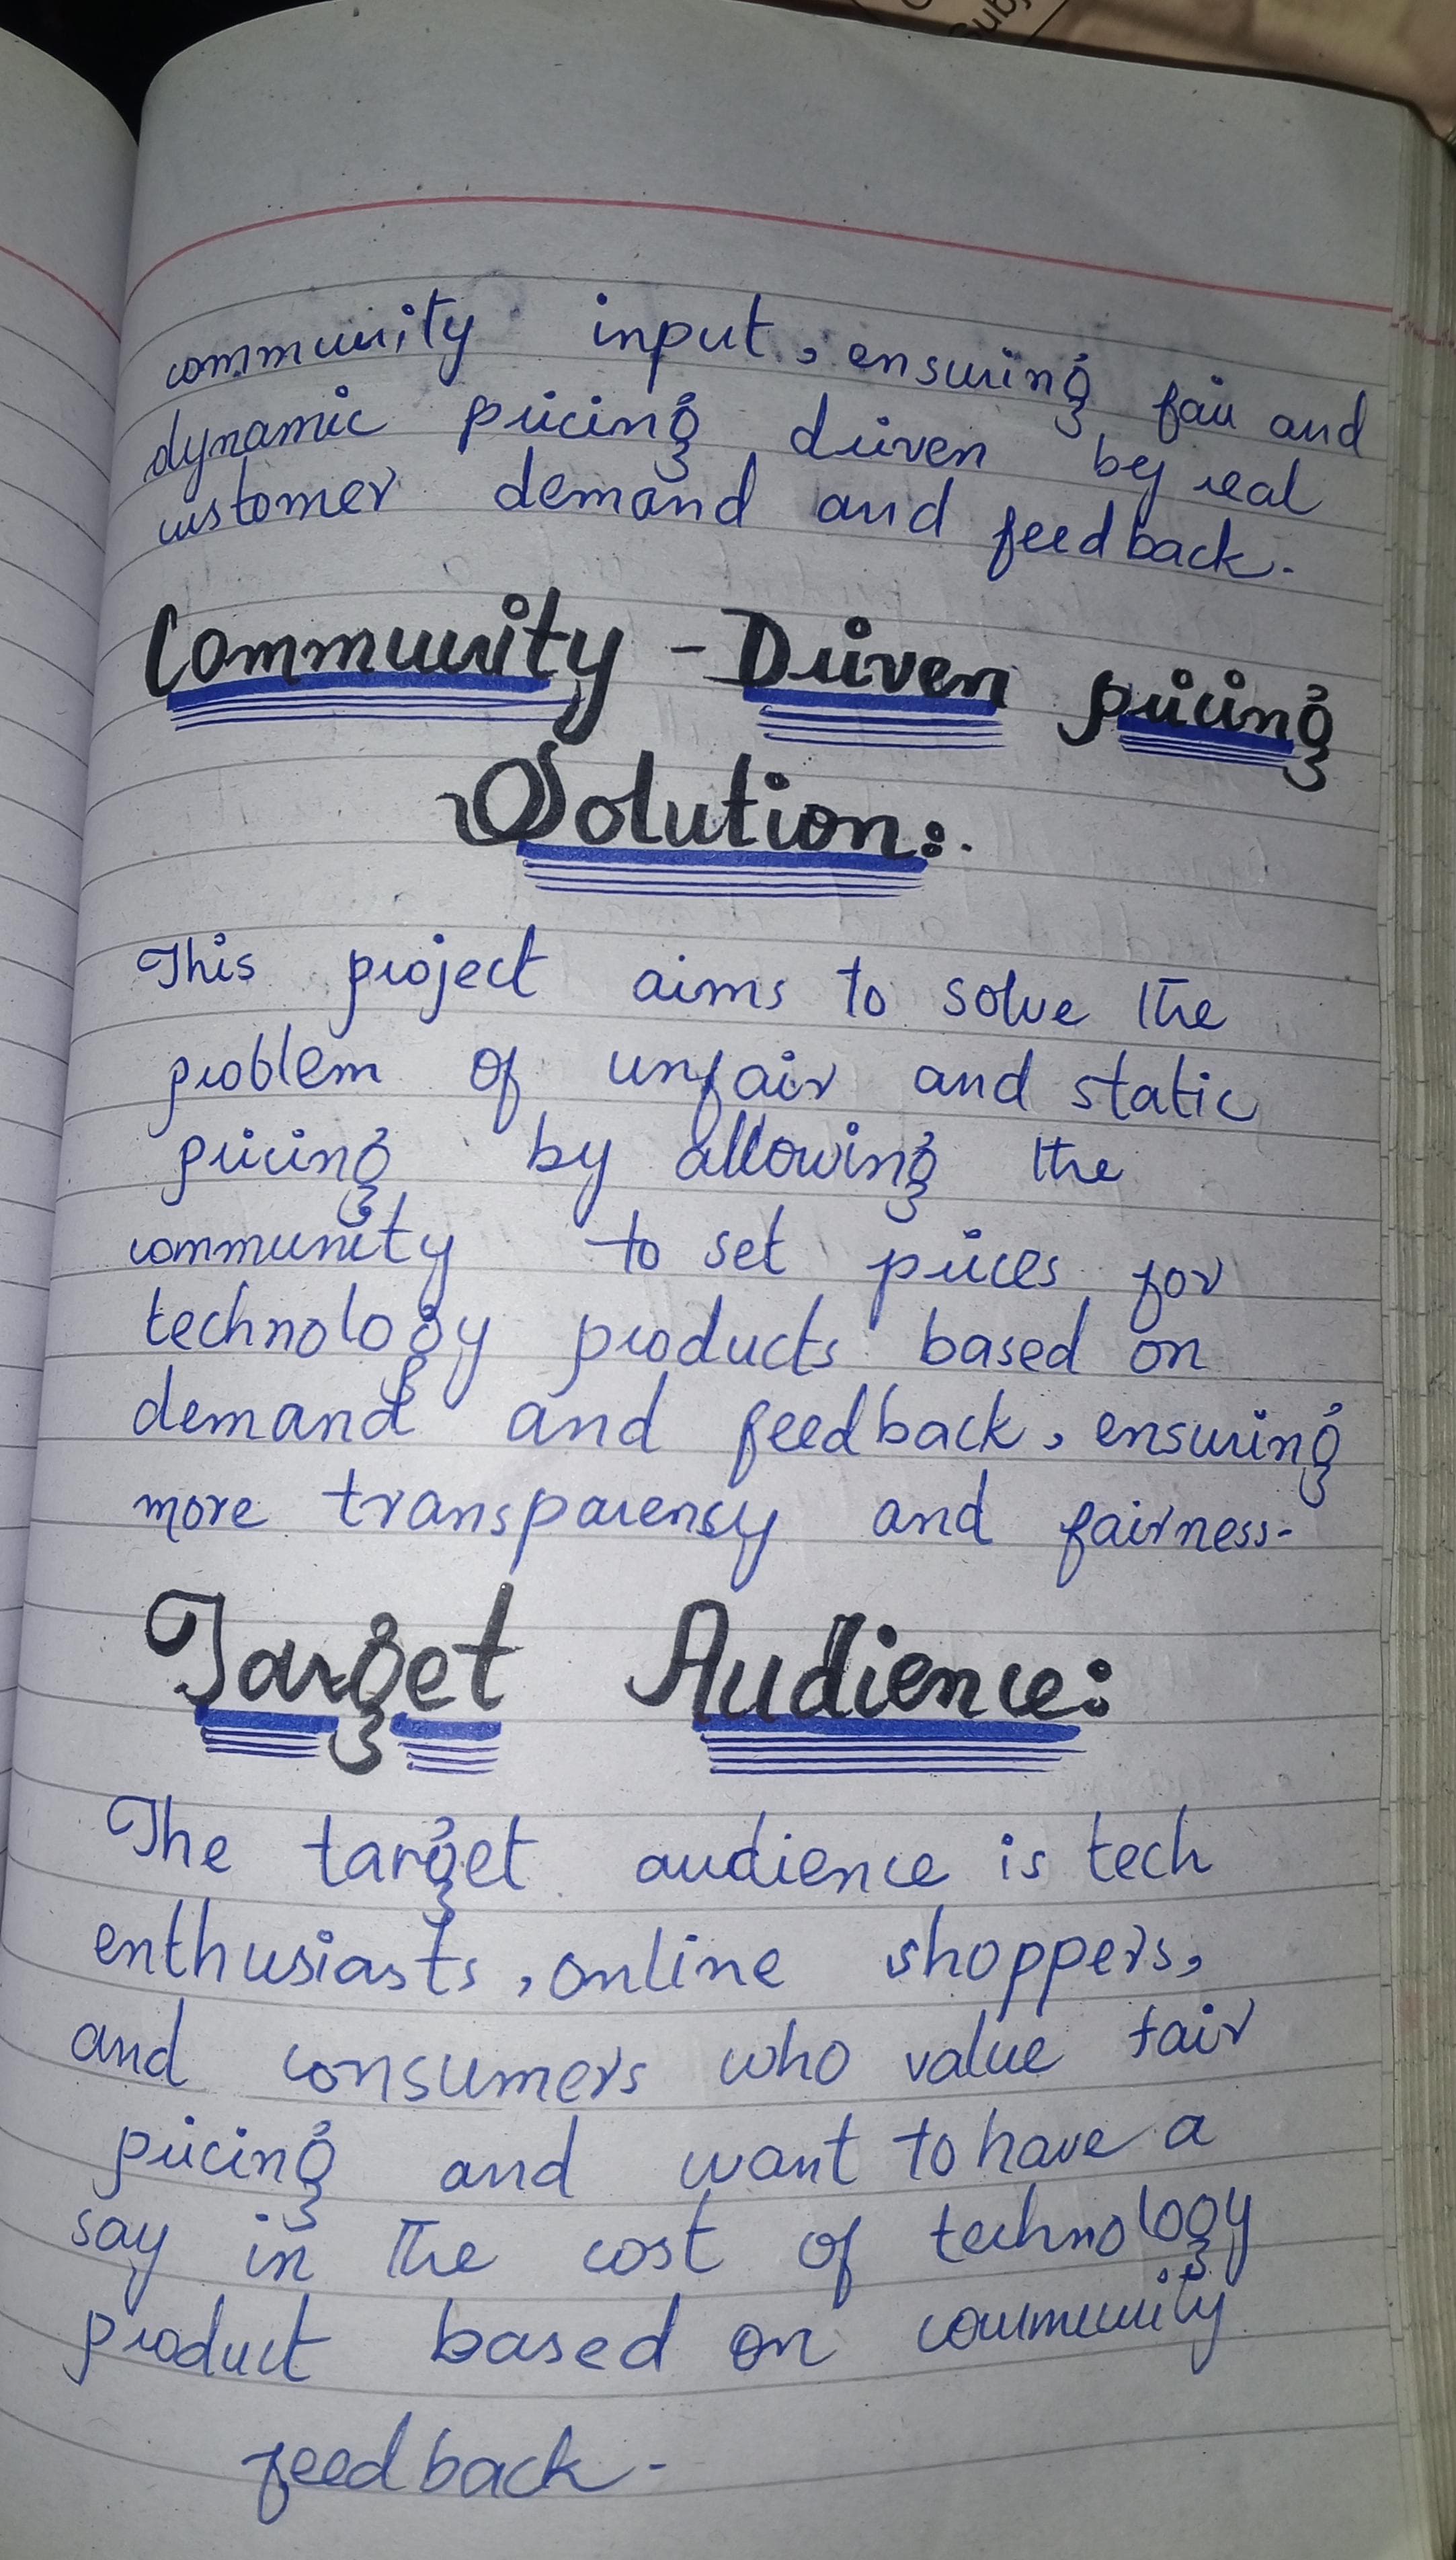 Subj
community input, ensuring fair and
dynamic pricing driven by real
customer demand and feedback.
Community - Driven pricing
Solution:.
This project aims to solve the
problem of unfair and static
pricing by allowing the
community to set prices for
technology products based on
demand and feedback, ensuring
more transparency and fairness.
Target Audience:
The target audience is tech
enthusiasts, online shoppers,
and consumers who value fair
pricing and want to have a
say in the cost of technology
product based on community
feedback.